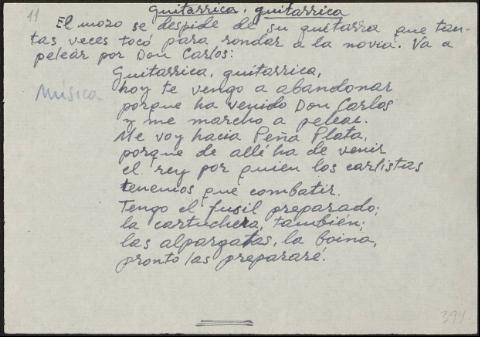 11
Guitarrica, guitarrica
El mozo se despide de su guitarra que tan-
tas veces tocó para rondar a la novia. Va a
pelear por Don Carlos:
Guitarrica, guitarrica,
hoy te vengo a abandonar
Música
porque ha venido Don Carlos
y me marcho a pelear.
Me voy hacia Peña Plata,
porque de allí ha de venir
el rey por quien los carlistas
tenemos que combatir.
Tengo el fusil preparado;
la cartuchera, también;
las alpargatas, la boina,
pronto las prepararé.
394